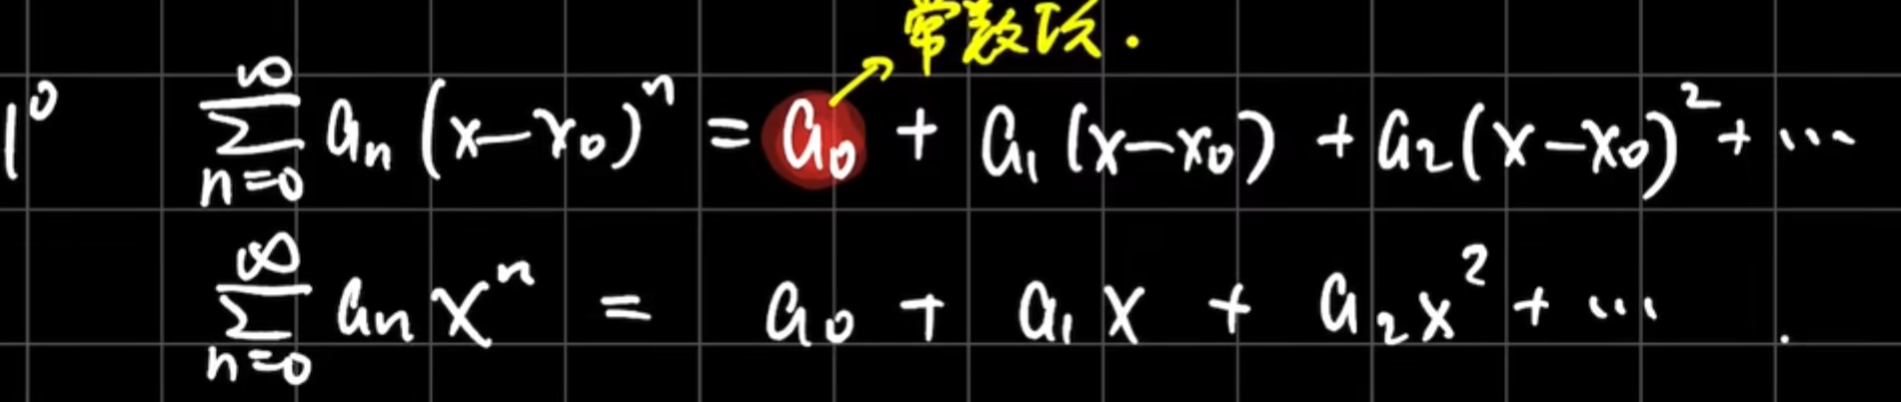 常数项.
1⁰ ∑_{n=0}^{∞} aₙ(x-x₀)ⁿ = a₀ + a₁(x-x₀) + a₂(x-x₀)² + ...
∑_{n=0}^{∞} aₙxⁿ = a₀ + a₁x + a₂x² + ... .